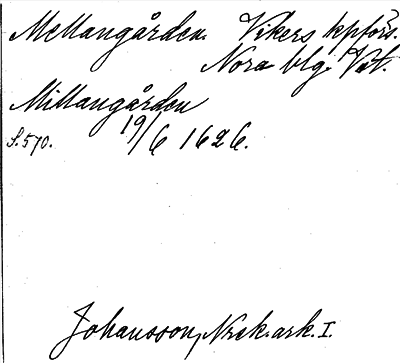 Mellangården. Vikers kpförs.
Nora blg. Vstl.
Millangården
S. 570. 19/6 1626.
Johansson, Norask. ark. I.